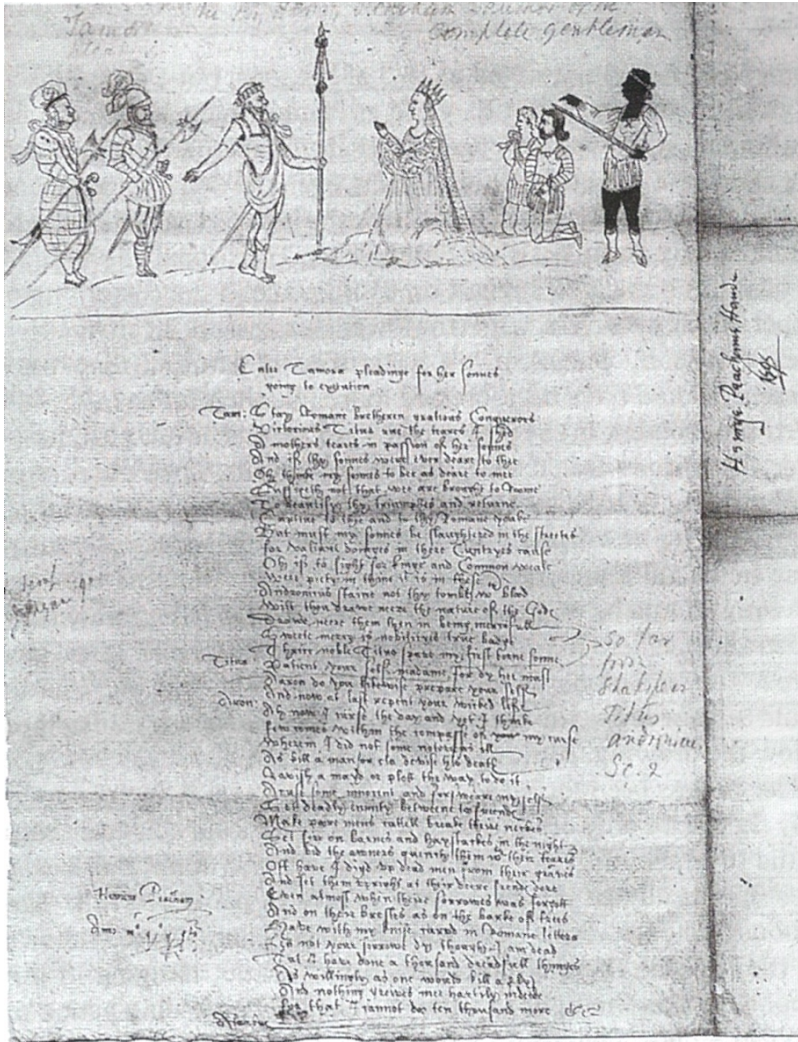 Henry Peacham Author of the
Complete gentleman
Enter Tamora pleadinge for her sonnes
going to execution
Tam: Stay Romane bretheren gratious Conquerors
Victorious Titus rue the teares I shed
A mothers teares in passion of her sonnes
And if thy sonnes were ever deare to thee
Oh thinke my sonnes to bee as deare to mee
Suffizeth not that wee are brought to Roome
To beautify thy triumphes and returne
Captiue to thee and to thy Romane yoake
But must my sonnes be slaughtered in the streetes
for valiant doinges in there Cuntryes cause
Oh if to fight for kinge and Common weale
Were piety in thine it is in these
Andronicus staine not thy tombe wth blood
Wilt thou drawe neere the nature of the Godes
Drawe neere them then in being mercifull
Sweete mercy is nobilityes true badge
Thrice noble Titus spare my first borne sonne
Titus: Patient your self madame for dy hee must
Aaron do you likewise prepare your self
And now at last repent your wicked life
Aron: Ah now I curse the day and yet I thinke
few comes within the compasse of my curse
Wherein I did not some notorious ill
As kill a man or els devise his death
Ravish a mayd or plott the way to do it
Acuse some innocent and forsweare my self
Set deadly enmity betweene to freindes
Make poore mens cattell breake theire neckes
Set fire on barnes and haystackes in the night
And bid the owners quench them wth their teares
Oft have I digd vp dead men from their graves
And set them vpright at their deere frendes dore
Even almost when theire sorrowes was forgott
And on their brestes as on the barke of trees
Have with my knife carvd in Romane letters
Lett not your sorrowe dy though I am dead
Tut I have done a thousand dreadfull thinges
As willingly as one would kill a fly
And nothing greives mee hartily indeede
for that I cannot doo ten thousand more &c
Alarbus
so far
from
Shakspear
Titus
Andronicus
Sc. 2
Henrye Peachams Hande
1595
Henricus Peacham
Anno